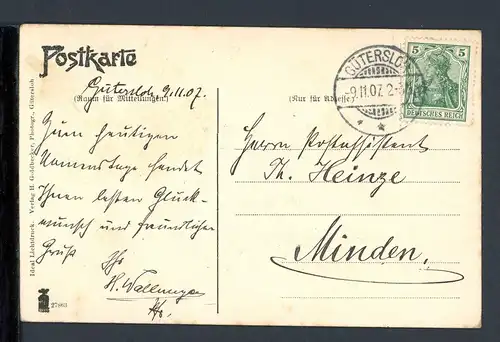 Postkarte
Gütersloh 9.11.07.
(Raum für Mitteilungen.)
Zum heutigen
Namenstage sendet
Ihnen besten Glück-
wunsch und freundlichen
Gruß
Ihr
H.
(Nur für Adresse)
GÜTERSLOH
-9.11.07. 2-3
5 5
DEUTSCHES REICH
Herrn Postassistent
Th. Heinze
Minden.
Ideal Lichtdruck. Verlag H. Goldbecker, Photogr., Gütersloh
27863